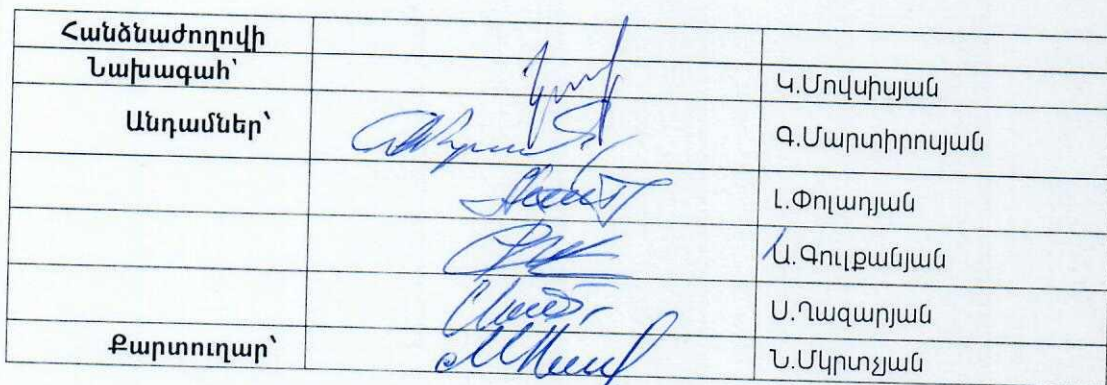 Հանձնաժողովի
Նախագահ՝ Կ.Մովսիսյան
Անդամներ՝ Գ.Մարտիրոսյան
Լ.Փոլադյան
Ա.Գուլքանյան
Ս.Ղազարյան
Քարտուղար՝ Ն.Մկրտչյան